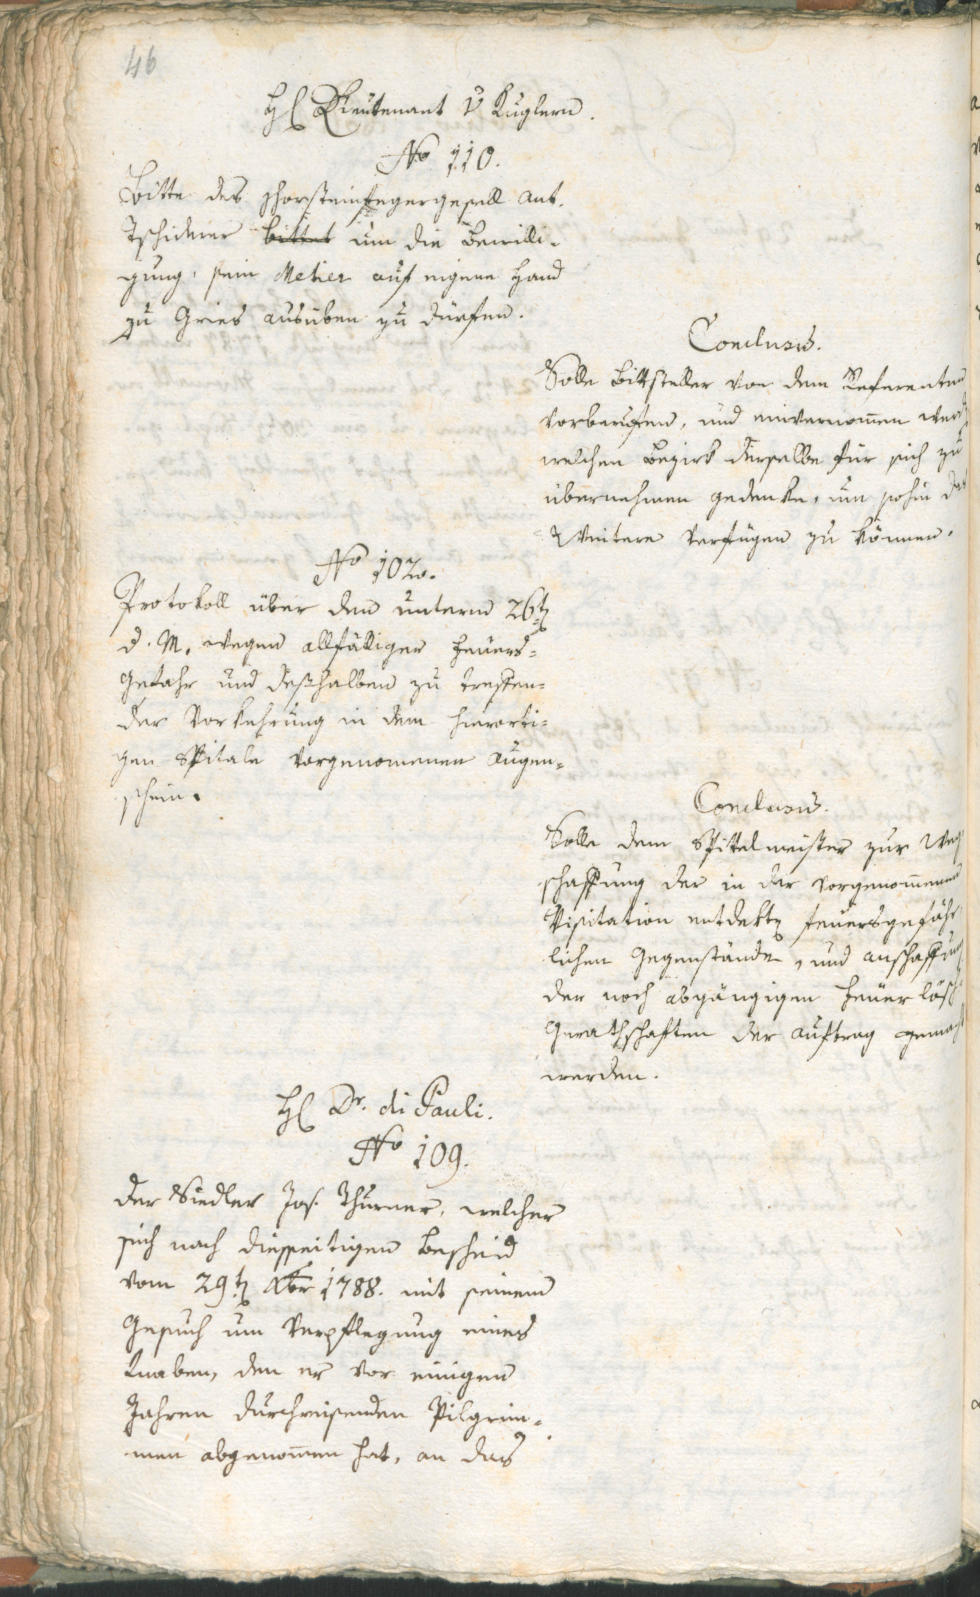 46
H Lieutenant v Kuglern.
No 110.
Bitte des Chorsteinfegergesell Ant.
Tschiderer bittet um die Bewilli-
gung, sein Metier auf eigene Hand
zu Gries ausüben zu dürfen.
Conclusum.
Solle Bittsteller von dem Referenten
vorberufen, und einvernommen werd
welchen Bezirk derselbe für sich zu
übernehmen gedenke, um sohin das
Weitere verfügen zu können.
No 102.
Protokoll über den unterm 26t
d. M. wegen allfälliger Feuers-
Gefahr und deßhalben zu treffen-
der Vorkehrung in dem hierorti-
gen Spitale vorgenommenen Augen-
schein.
Conclusum.
Solle dem Spitelmeister zur Weg
schaffung der in der vorgenommenen
Visitation entdekten feuersgefähr
lichen Gegenstände, und Anschaffung
der noch abgängigen Feuer lösch
Gerathschaften der Auftrag gemacht
werden.
H Dr. di Pauli.
No 109.
Der Siedler Jos. Thurner, welcher
sich nach diesseitigen Bescheid
vom 29t Xbr 1788. mit seinem
Gesuch um Verpflegung eines
Knaben, den er vor einigen
Jahren durchreisenden Pilgrim-
men abgenommen hat, an das